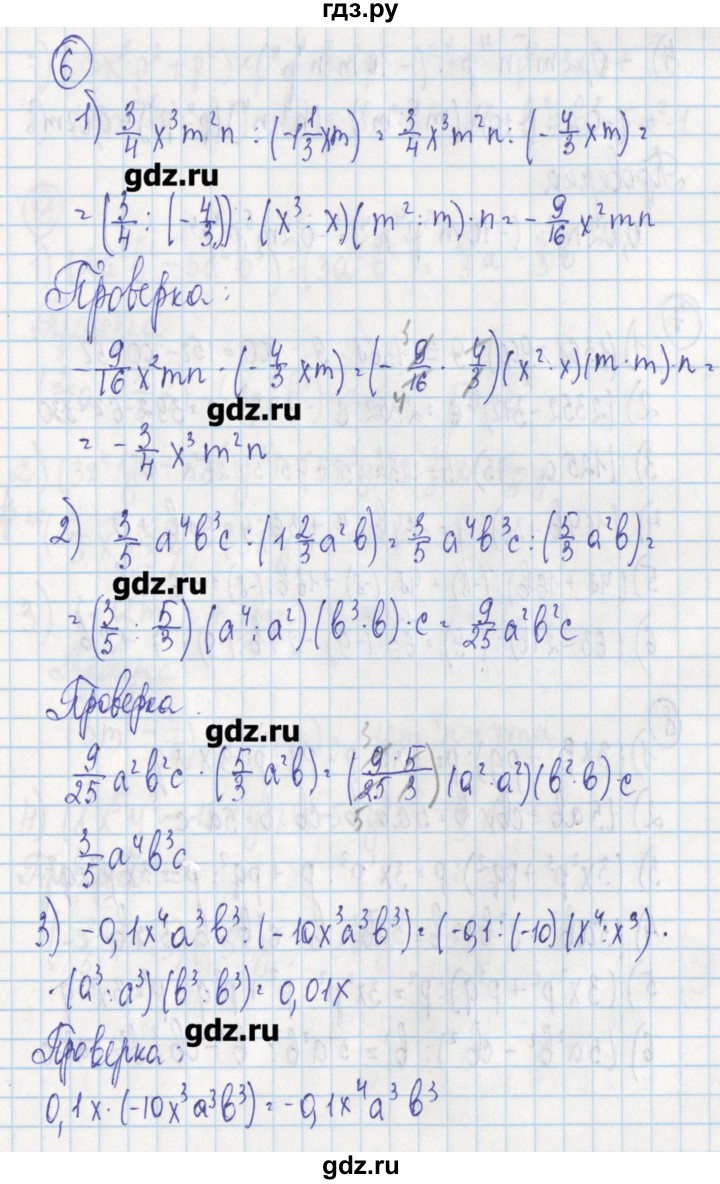 гдз.ру
6
1) 3/4 x³m²n : (-1 1/3 xm) = 3/4 x³m²n : (-4/3 xm) =
gdz.ru
= (3/4 : (-4/3)) · (x³ : x)(m² : m) · n = -9/16 x²mn
Проверка:
-9/16 x²mn · (-4/3 xm) = (-9/16 · 4/3)(x² · x)(m · m) · n =
3 4
gdz.ru
= -3/4 x³m²n
2) 3/5 a⁴b³c : (1 2/3 a²b) = 3/5 a⁴b³c : (5/3 a²b) =
gdz.ru
= (3/5 : 5/3)(a⁴ : a²)(b³ · b) · c = 9/25 a²b²c
Проверка
gdz.ru
9/25 a²b²c · (5/3 a²b) = (9 · 5 / 25 3)(a² · a²)(b² · b) c
3 5
3/5 a⁴b³c
3) -0,1x⁴a³b³ : (-10x³a³b³) = (-0,1 : (-10)(x⁴ : x³) ·
· (a³ : a³)(b³ : b³) = 0,01x
gdz.ru
Проверка:
0,1x · (-10x³a³b³) = -0,1x⁴a³b³
gdz.ru